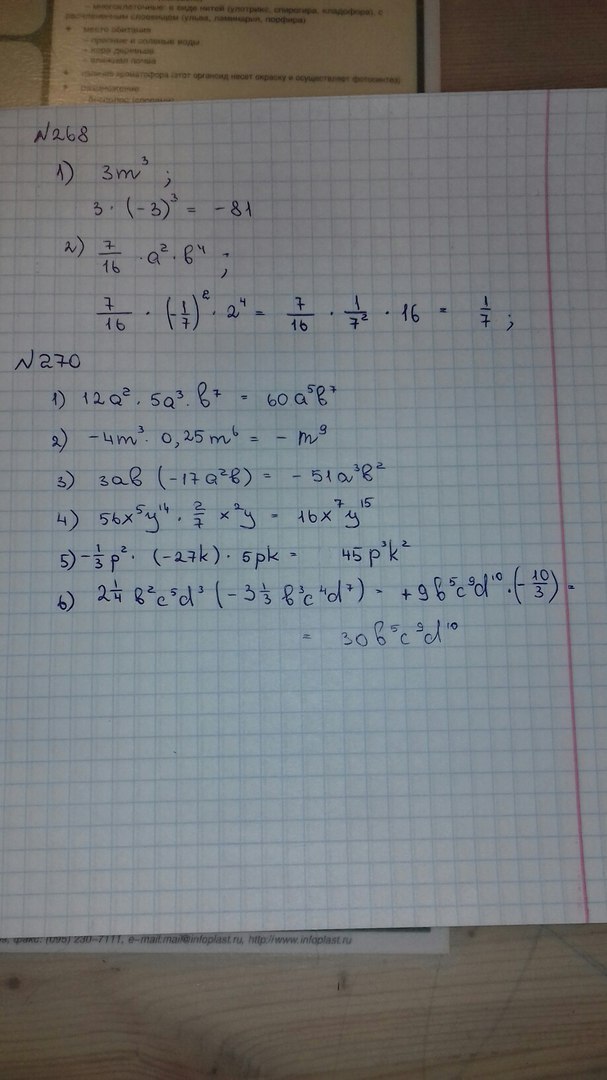 – многоклеточные: в виде нитей (улотрикс, спирогира, кладофора), с
расчлененным слоевищем (ульва, ламинария, порфира)
место обитания
– пресные и соленые воды
– кора деревьев
– влажная почва
наличие хроматофора (этот органоид несет окраску и осуществляет фотосинтез)
размножение
№268
1) 3m³ ;
3 · (-3)³ = -81
2) 7/16 · a² · b⁴ ;
7/16 · (-1/7)² · 2⁴ = 7/16 · 1/7² · 16 = 1/7 ;
№270
1) 12a² · 5a³ · b⁷ = 60a⁵b⁷
2) -4m³ · 0,25m⁶ = - m⁹
3) 3ab (-17a²b) = - 51a³b²
4) 56x⁵y¹⁴ · 2/7 x²y = 16x⁷y¹⁵
5) -1/3 p² · (-27k) · 5pk = 45p³k²
6) 2 1/4 b²c⁵d³ (-3 1/3 b³c⁴d⁷) = +9b⁵c⁹d¹⁰ · (-10/3) =
= 30b⁵c⁹d¹⁰
факс: (095) 230–7111, e–mail.mail@infoplast.ru, http://www.infoplast.ru